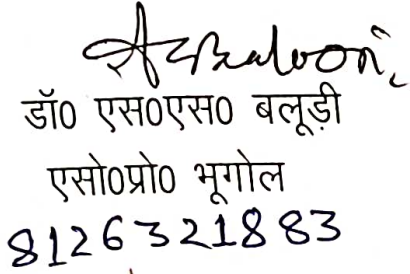 डॉ0 एस0एस0 बलूड़ी
एसो0प्रो0 भूगोल
8126321883